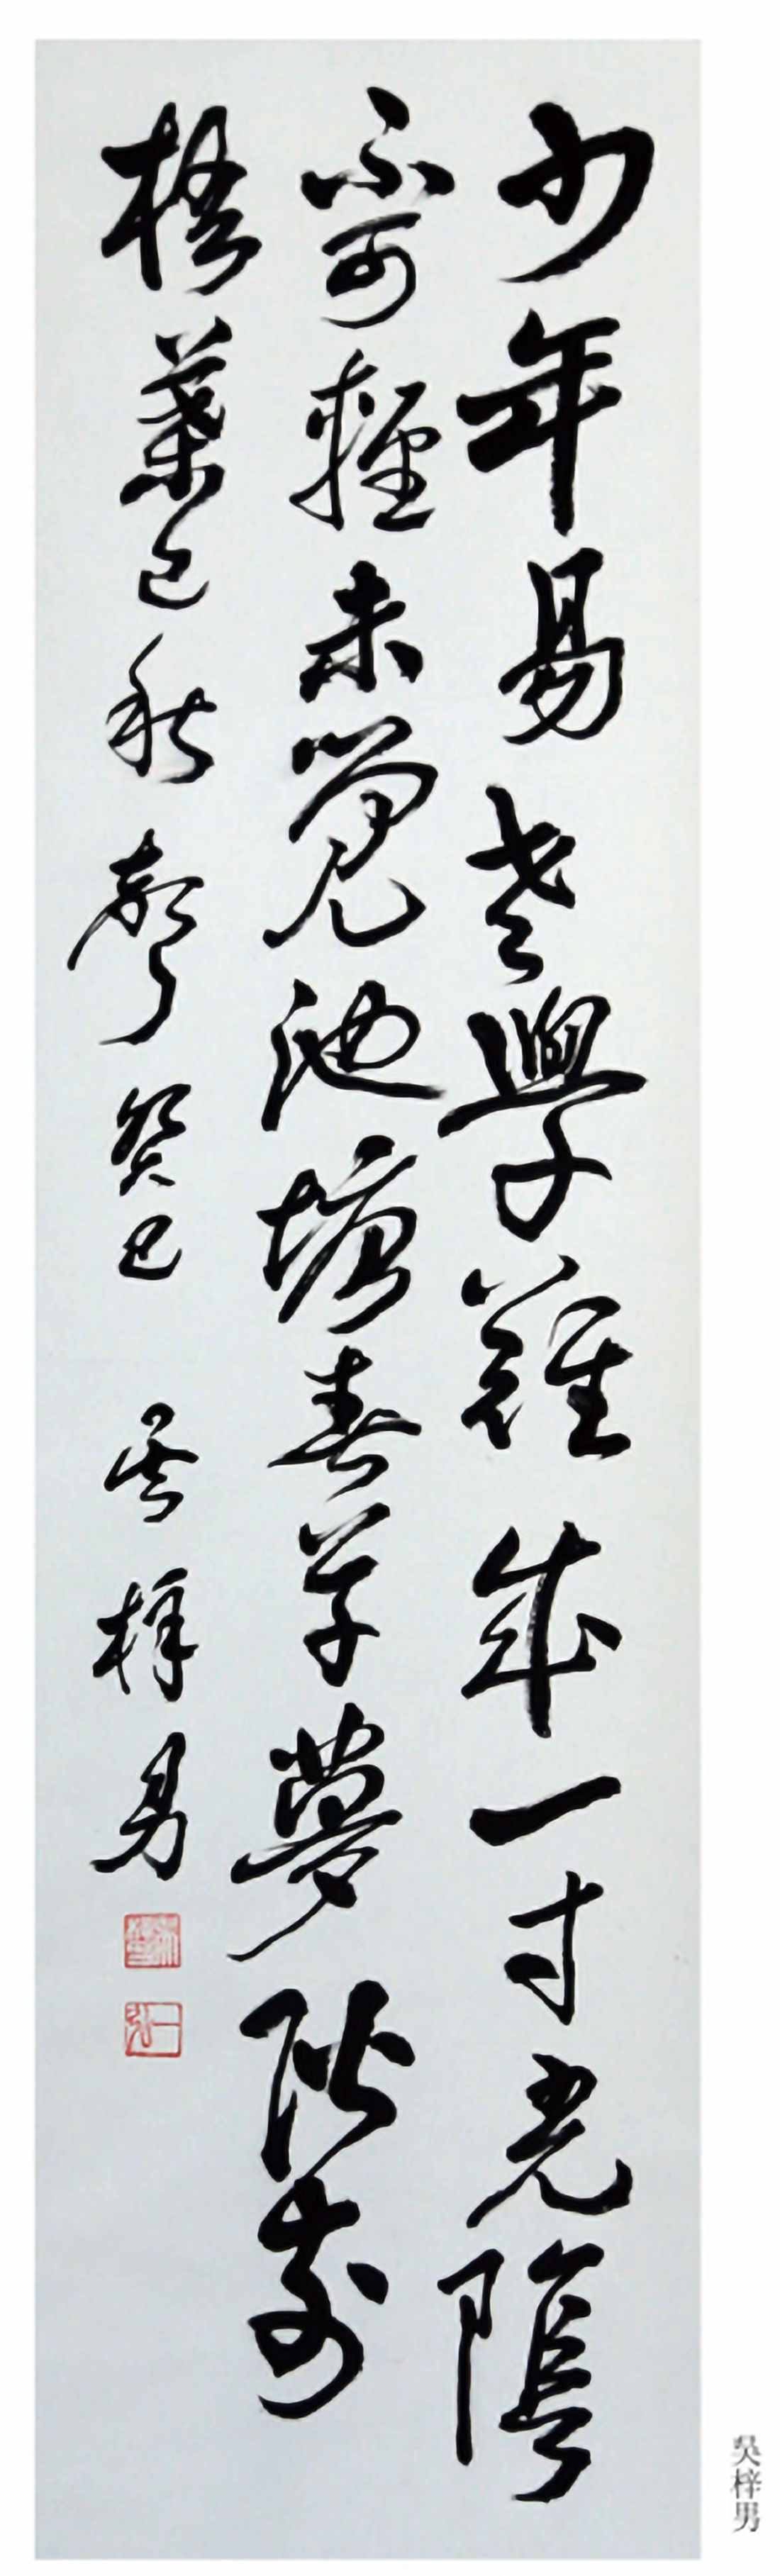 少年易老學難成一寸光陰
不可輕未覺池塘春草夢階前
梧葉已秋聲癸巳 吳梓男
吳梓男